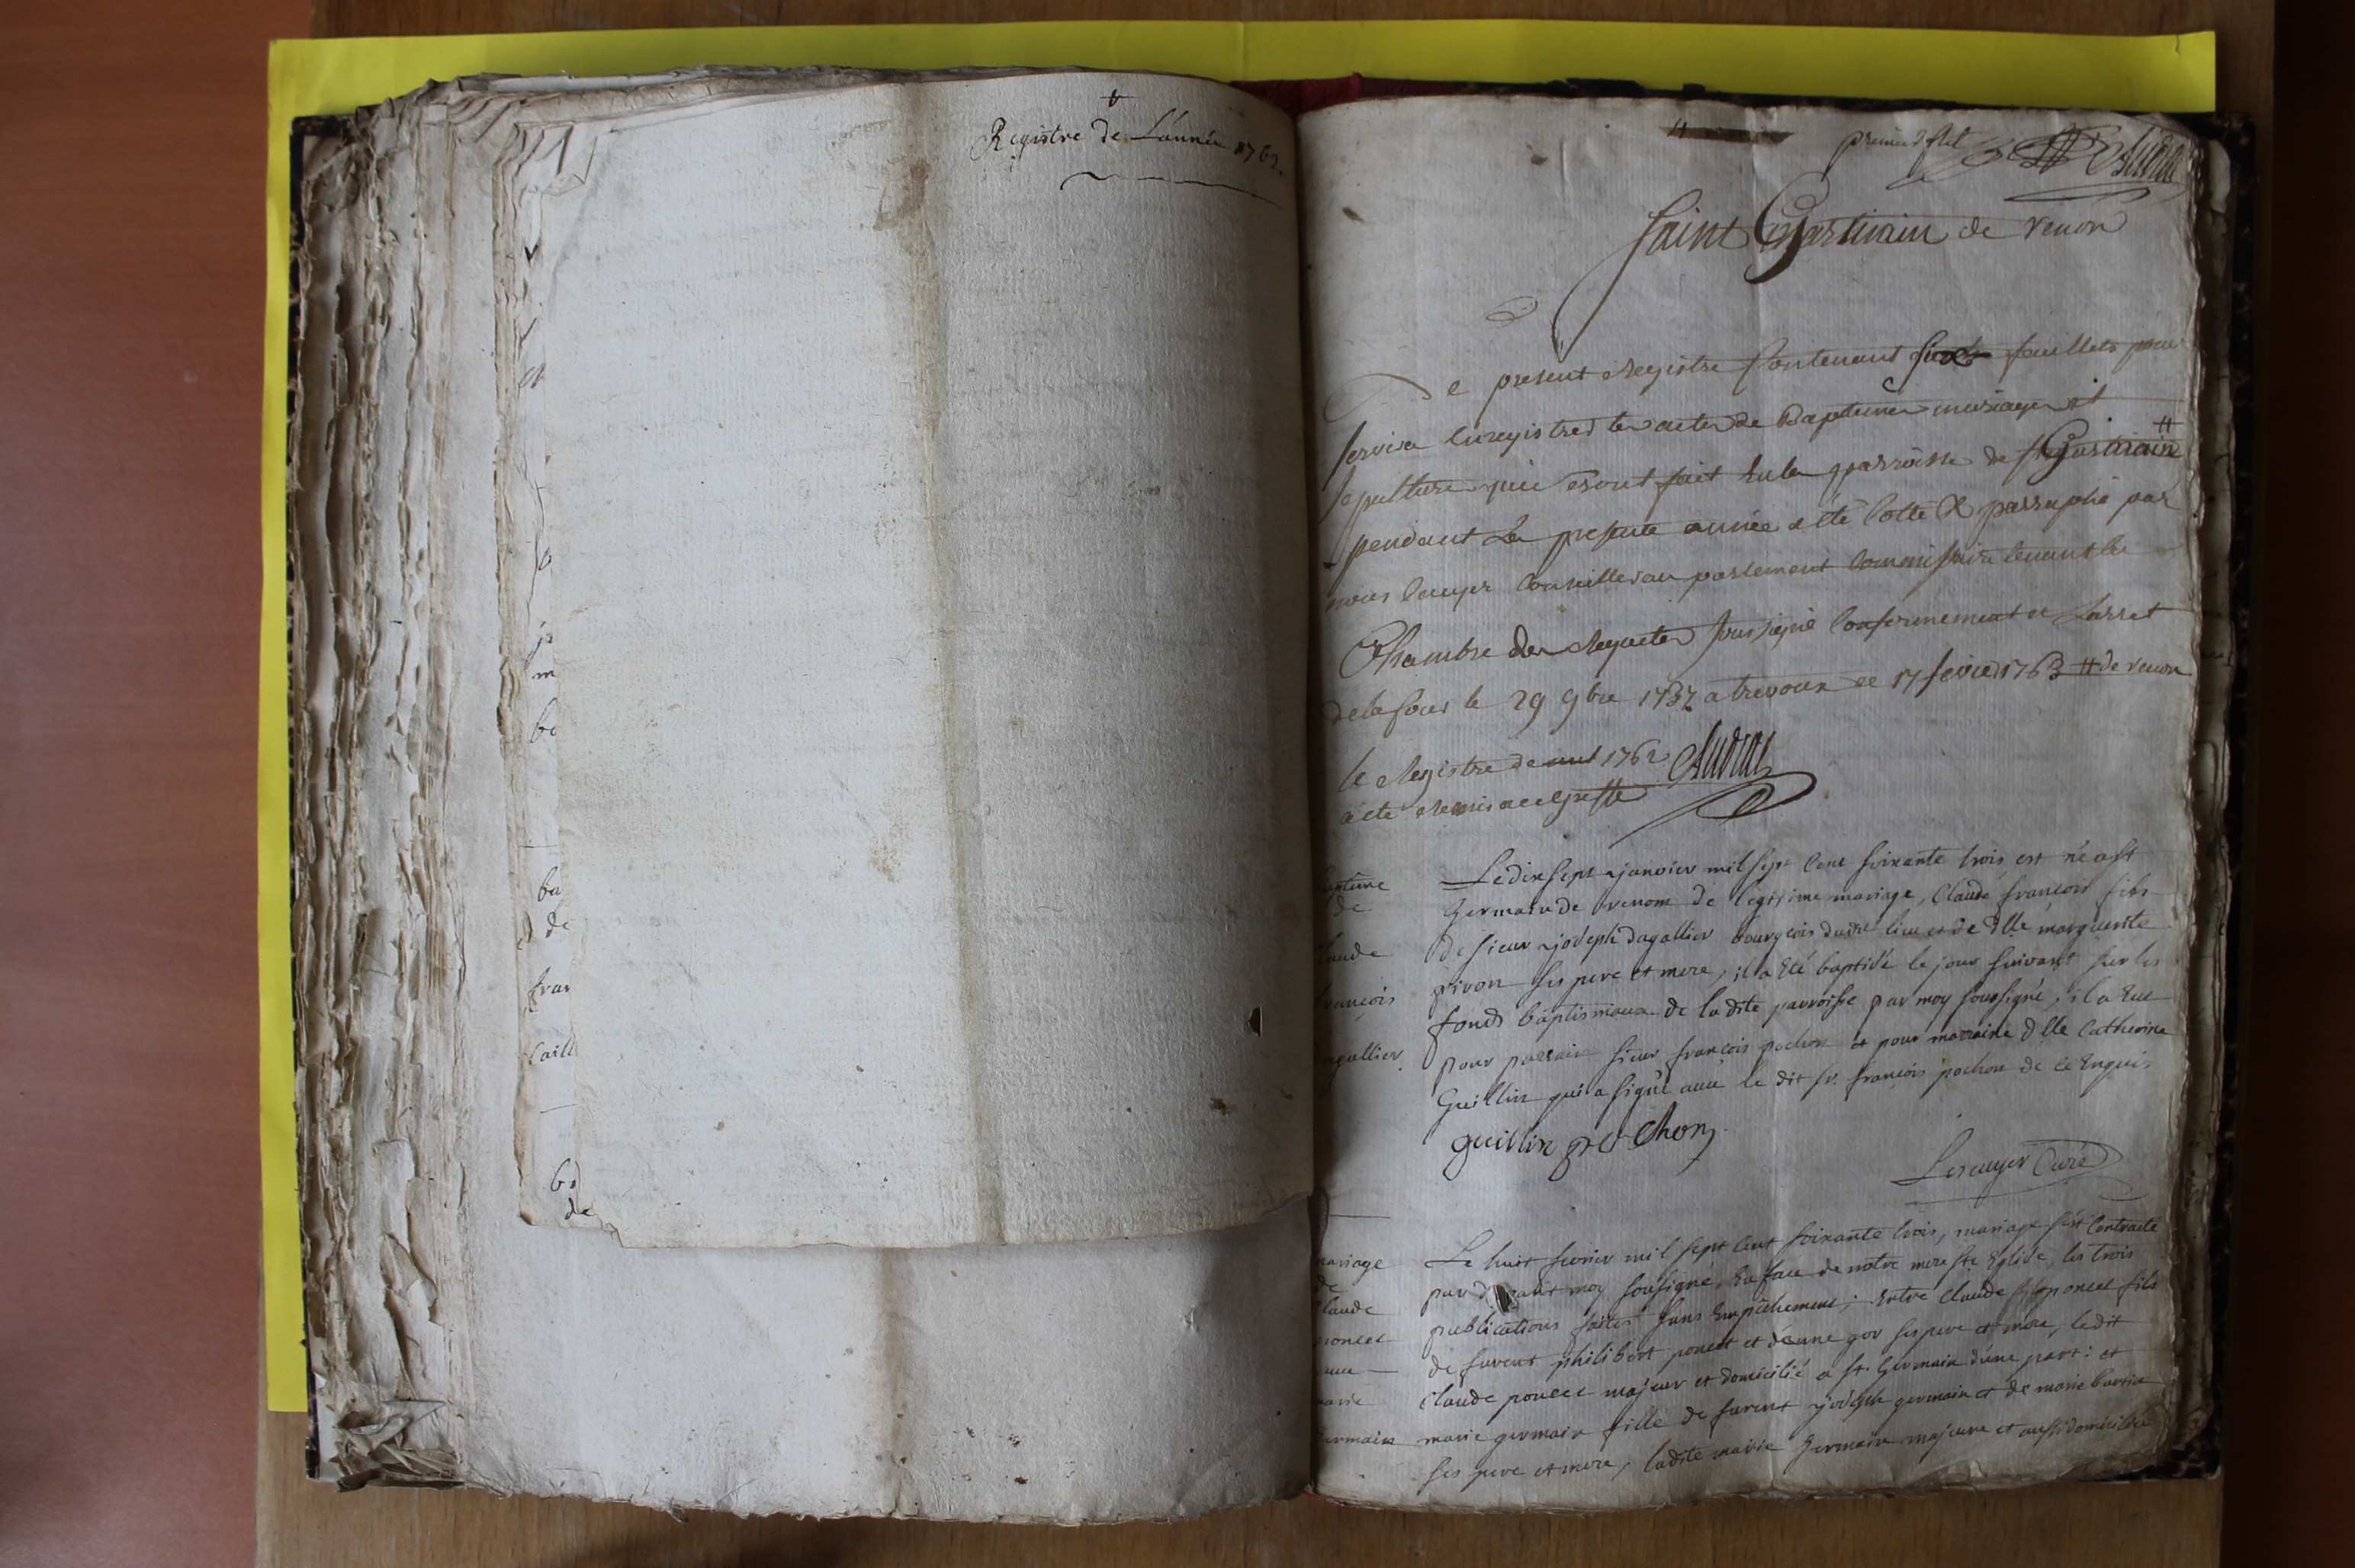 Registre de L'année 1762
premier flet
Saint Germain de renon
Le present Registre Contenant feuillets pour
servira Enregistrer les actes de Baptemes mariages et
sepulture qui seront fait En la parroisse de st Germain #
pendant La presente année a été Cotté & parraphé par
nous Conseiller au parlement Commissaire tenant la
Chambre des Requetes soussigné Conformement a Larret
de la Cour le 29 9bre 1737 a trevoux ce 17 fevrier 1763 # de renon
le Registre de 1762
a ete Remis au Greffe
Audras
baptême
de
Claude
françois
dagallier
Le dix sept janvier mil sept Cent soixante trois est né a st
Germain de renom de legitime mariage, Claude françois fils
de sieur joseph Dagallier bourgeois dudit lieu et de dlle marguerite
pivon ses pere et mere, il a Eté baptisé le jour suivant sur les
fonds baptismaux de la dite parroisse par moy soussigné, il a Eue
pour parrain sieur françois pochon et pour marraine dlle Catherine
Guillin qui a signé avec le dit sr. françois pochon de ce Enquis
guillin pochon
Lescuyer Curé
mariage
de
Claude
poncet
avec
marie
germain
Le huit fevrier mil sept Cent soixante trois, mariage s'est Contracté
par devant moy soussigné, En face de notre mere ste Eglise, les trois
publications faites sans Empêchement; Entre Claude poncet fils
de furent philibert poncet et jeanne gov ses pere et mere, ledit
Claude poncet majeur et domicilié a st. Germain d'une part: et
marie germain fille de furent joseph germain et de marie
ses pere et mere, ladite marie Germain majeure et aussi domiciliée